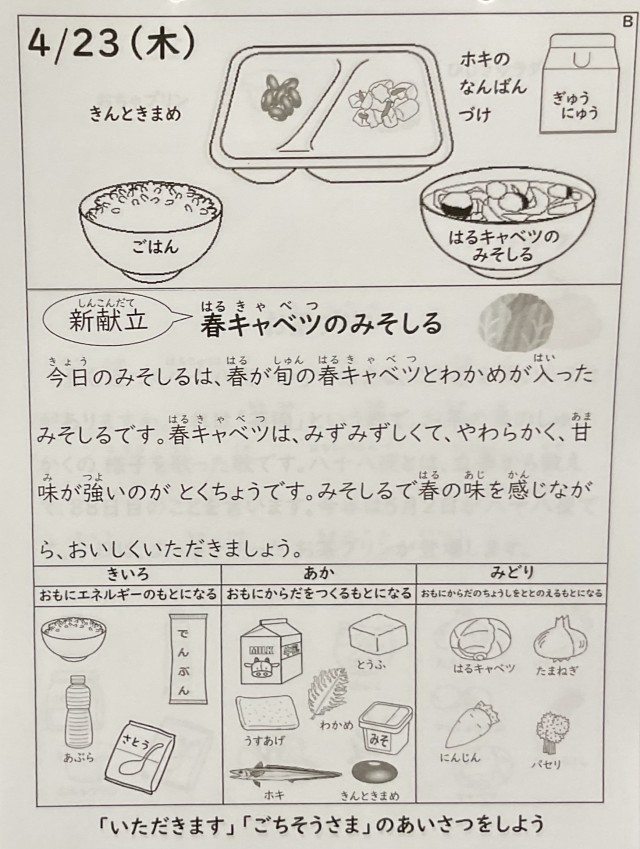 B
4/23(木)
きんときまめ
ホキの
なんばん
づけ
ぎゅう
にゅう
ごはん
はるキャベツの
みそしる
しんこんだて
新献立
はるきゃべつ
春キャベツのみそしる
きょう はる しゅん はるきゃべつ はい
今日のみそしるは、春が旬の春キャベツとわかめが入った
はるきゃべつ あま
みそしるです。春キャベツは、みずみずしくて、やわらかく、甘
み つよ はる あじ かん
味が強いのが とくちょうです。みそしるで春の味を感じなが
ら、おいしくいただきましょう。
きいろ
おもにエネルギーのもとになる
でんぷん
あぶら
さとう
あか
おもにからだをつくるもとになる
MILK
とうふ
わかめ
うすあげ
みそ
ホキ
きんときまめ
みどり
おもにからだのちょうしをととのえるもとになる
はるキャベツ
たまねぎ
にんじん
パセリ
「いただきます」「ごちそうさま」のあいさつをしよう